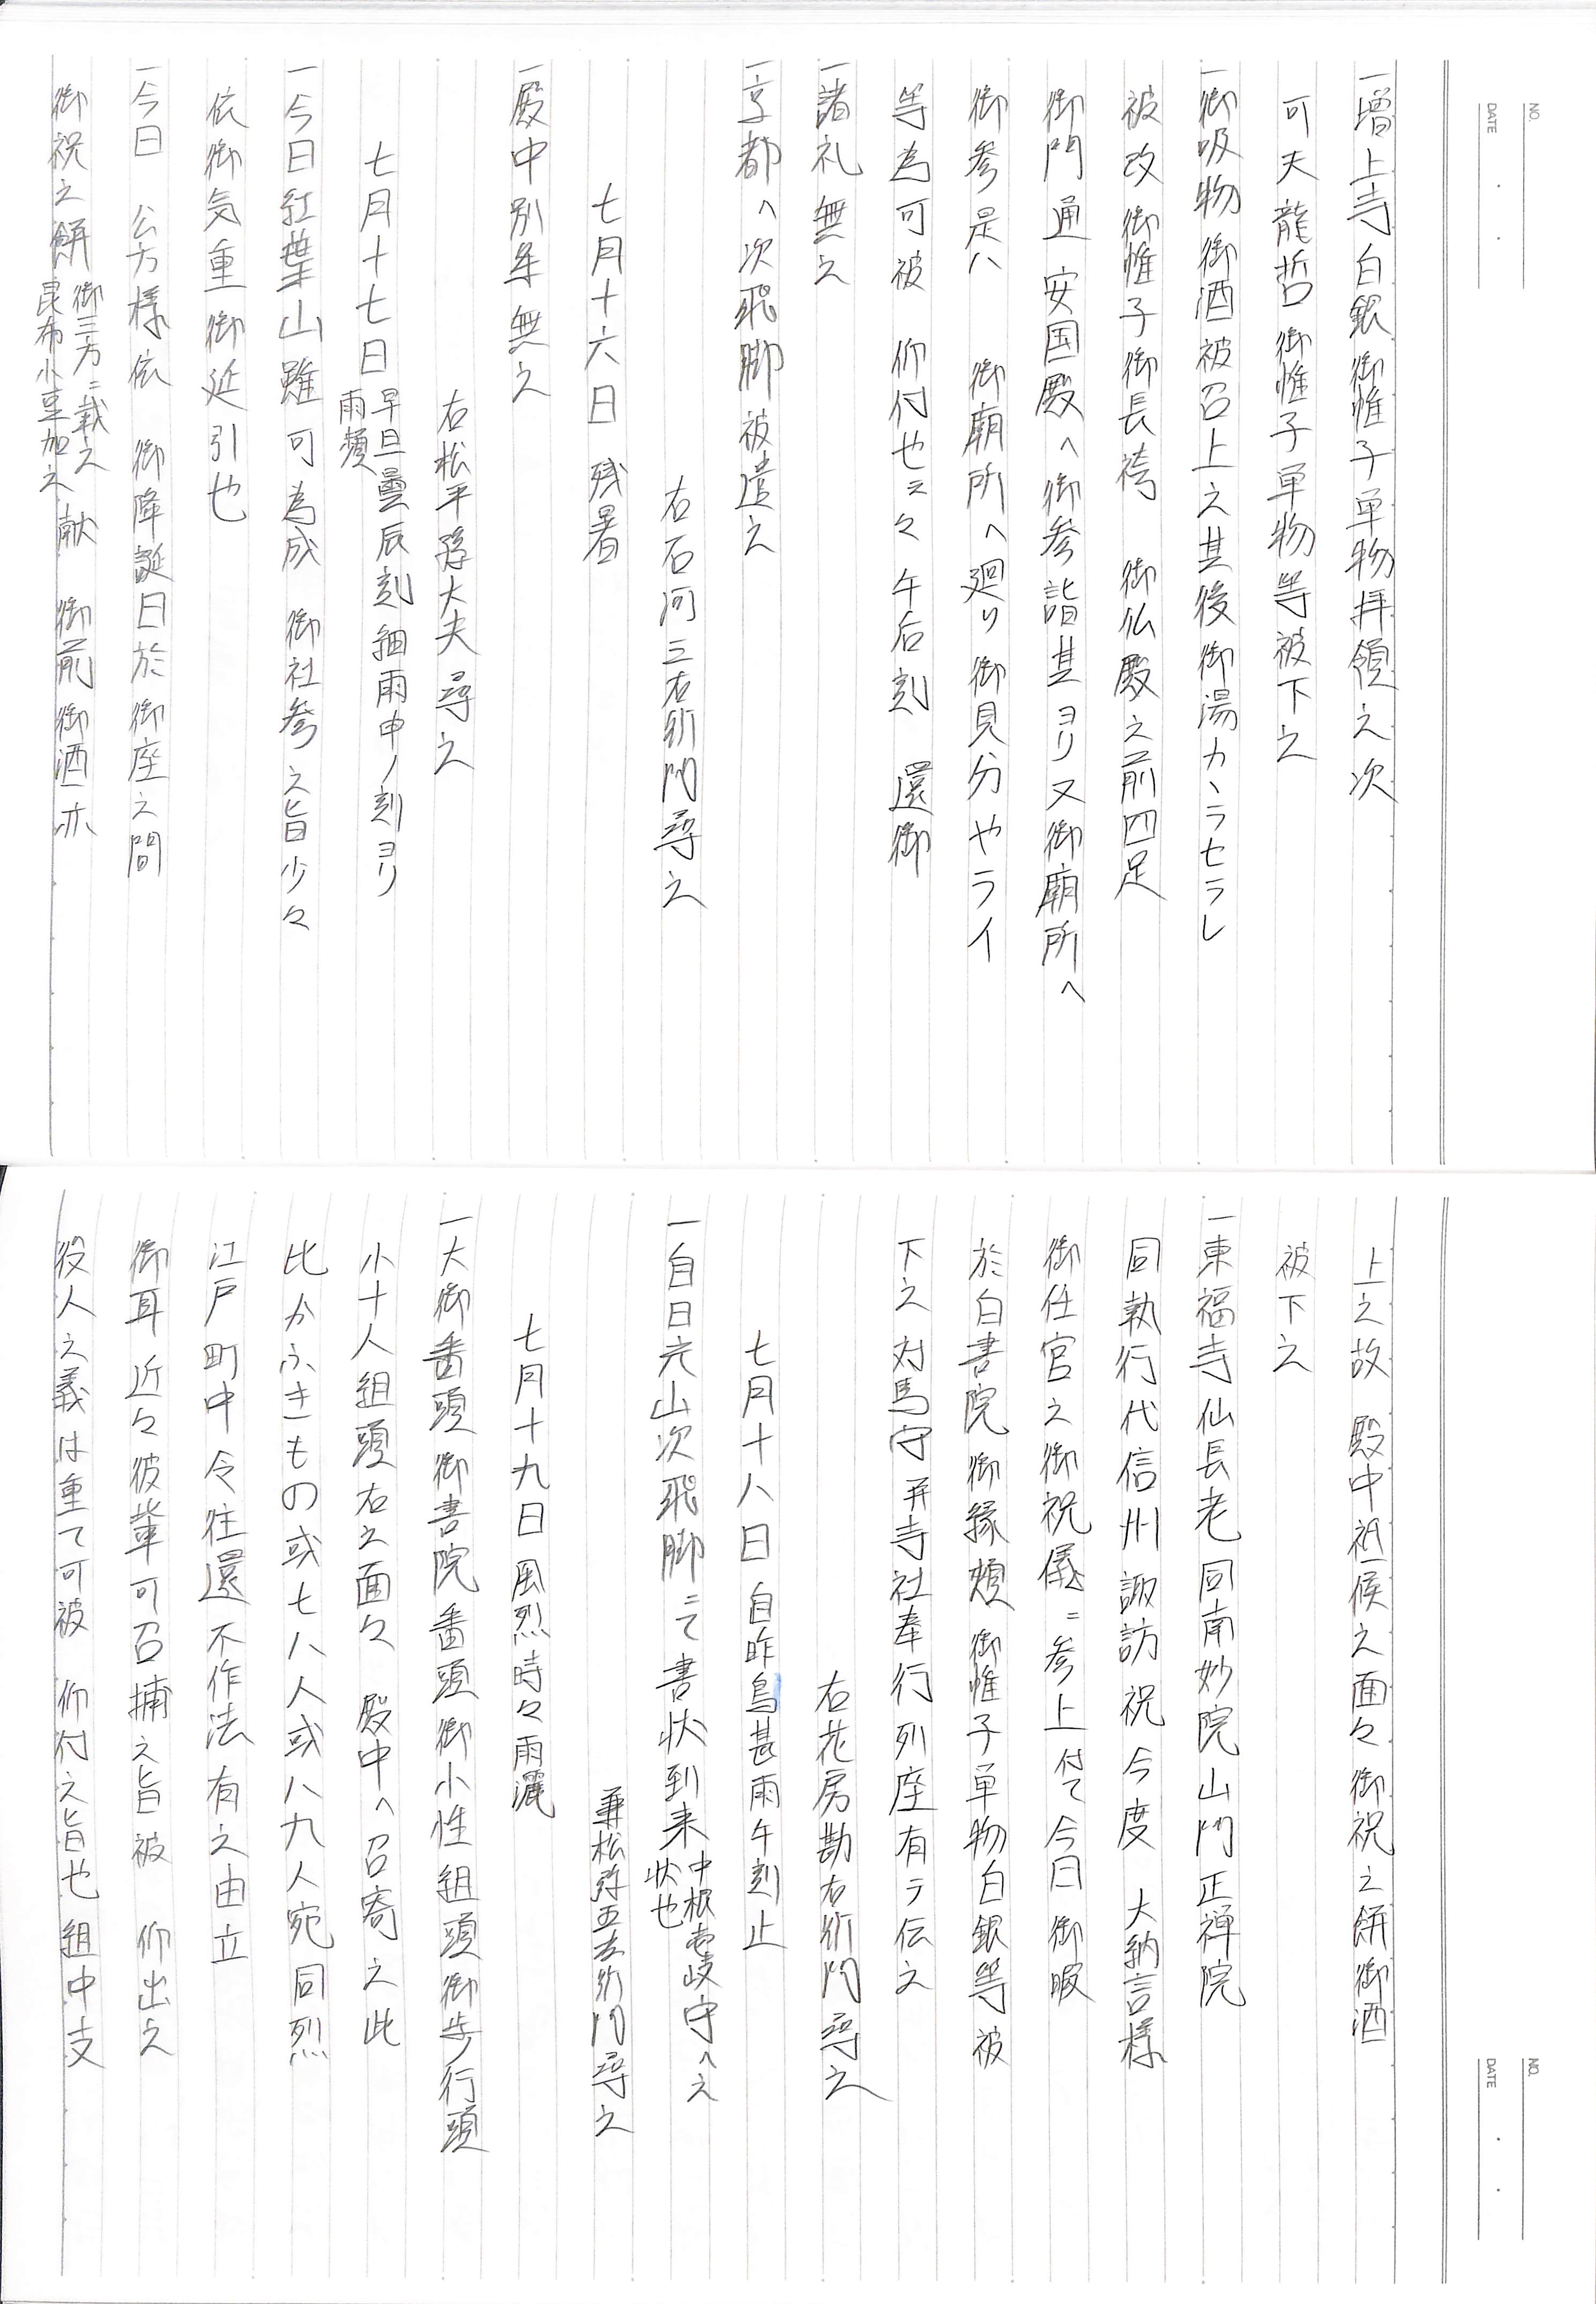 NO.
DATE
一増上寺白銀御帷子単物拝領之次
可天龍哲御帷子単物等被下之
一御吸物御酒被召上之其後御湯カヽラセラレ
被改御帷子御長袴 御仏殿之前四足
御門通 安国殿へ御参詣其ヨリ又御廟所へ
御参是ハ 御廟所へ廻り御見分ヤライ
等為可被 仰付也云々午后刻 還御
一諸礼無之
一京都へ次飛脚被遣之
右石河三右衛門尋之
七月十六日 残暑
一殿中別条無之
右松平孫大夫尋之
七月十七日 早旦曇辰刻細雨申ノ刻ヨリ
雨頻
一今日紅葉山雖可為成 御社参之旨少々
依御気重御延引也
一今日 公方様依 御降誕日於御座之間
御祝之餅 御三方ニ載之
昆布小豆加之 献 御前御酒亦
上之故 殿中祗候之面々御祝之餅御酒
被下之
一東福寺仙長老同南妙院山門正禅院
同執行代信州諏訪祝今度 大納言様
御任官之御祝儀ニ参上付て今日御暇
於白書院御縁頬御帷子単物白銀等被
下之対馬守并寺社奉行列座有テ伝之
右花房勘右衛門尋之
七月十八日 自昨鳥甚雨午刻止
一自日光山次飛脚ニて書状到来 中根壱岐守へ之
状也
兼松弥五左衛門尋之
七月十九日 風烈時々雨灑
一大御番頭御書院番頭御小性組頭御歩行頭
小十人組頭右之面々 殿中へ召寄之此
比かふきもの或七八人或八九人宛同烈
江戸町中令往還不作法有之由立
御耳近々彼輩可召捕之旨被 仰出之
役人之義は重て可被 仰付之旨也組中支
NO.
DATE